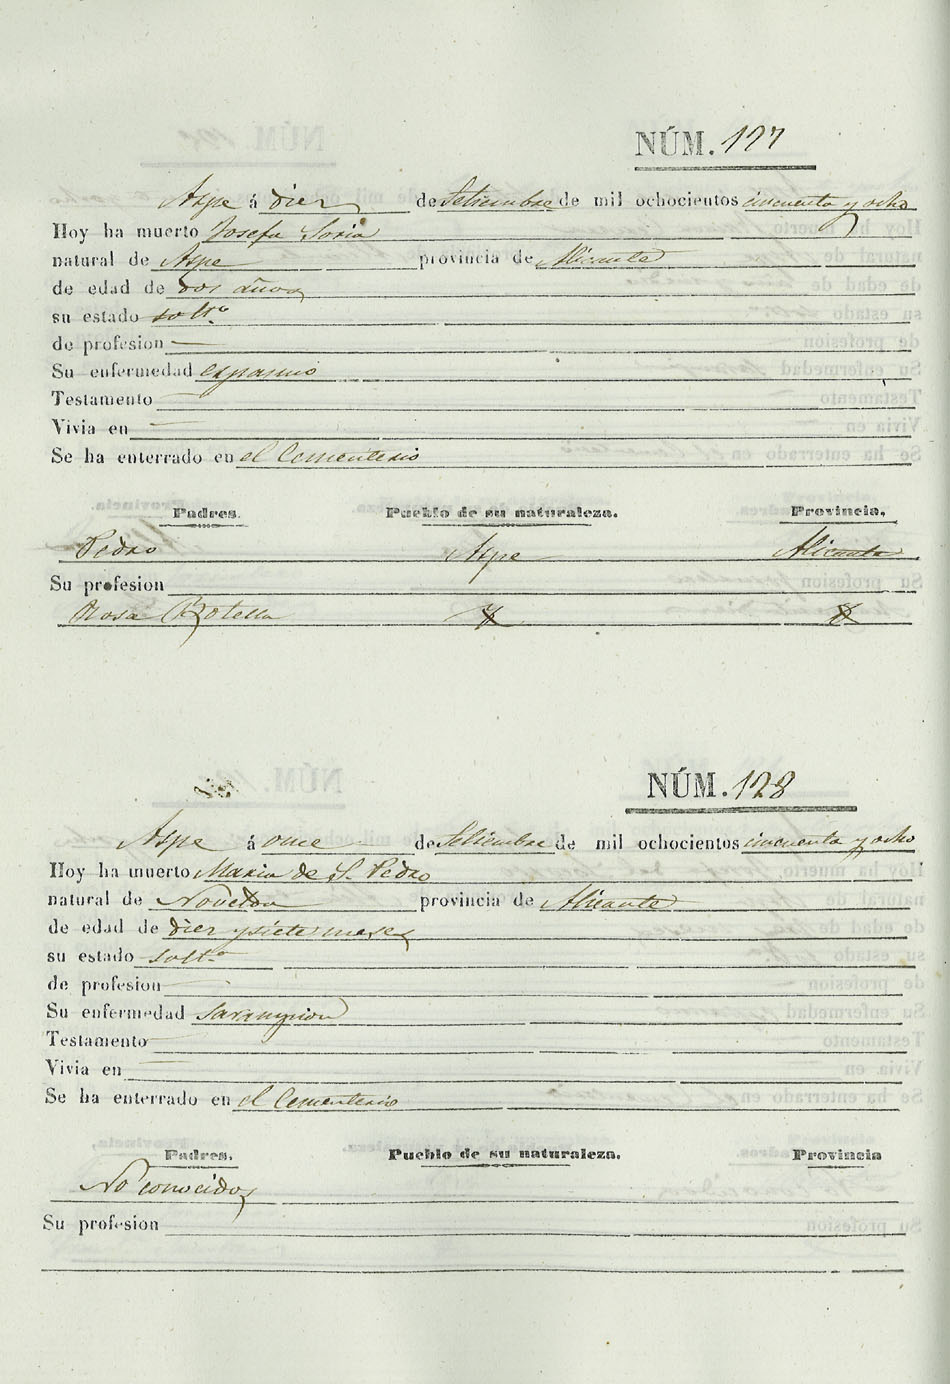 NÚM. 127
Aspe á diez de Setiembre de mil ochocientos cincuenta y ocho
Hoy ha muerto Josefa Soria
natural de Aspe provincia de Alicante
de edad de dos años
su estado solt.ª
de profesion —
Su enfermedad espasmo
Testamento —
Vivia en —
Se ha enterrado en el Cementerio
Padres. Pueblo de su naturaleza. Provincia.
Pedro Aspe Alicante
Su profesion
Rosa Botella
NÚM. 128
Aspe á once de Setiembre de mil ochocientos cincuenta y ocho
Hoy ha muerto Maria de S. Pedro
natural de Novelda provincia de Alicante
de edad de diez y siete meses
su estado solt.ª
de profesion
Su enfermedad sarampion
Testamento
Vivia en
Se ha enterrado en el Cementerio
Padres. Pueblo de su naturaleza. Provincia
No conocidos
Su profesion